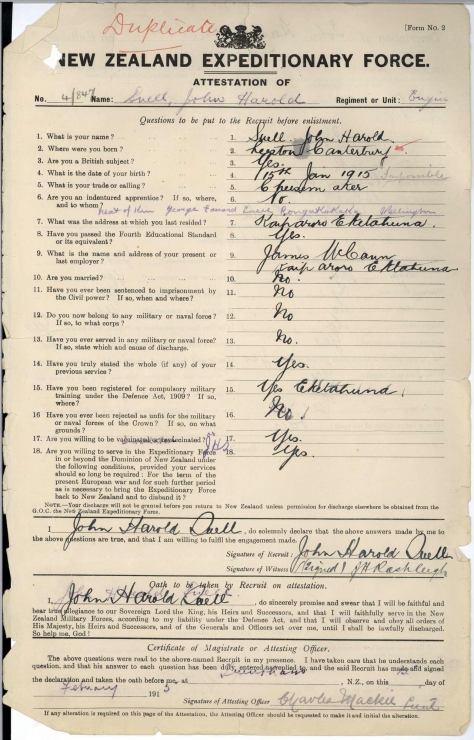 Duplicate
[Form No. 2
NEW ZEALAND EXPEDITIONARY FORCE.
ATTESTATION OF
No. 4/847 Name: Suell, John Harold Regiment or Unit:
Questions to be put to the Recruit before enlistment.
1. What is your name? 1. Suell. John Harold.
2. Where were you born? 2. Leeston Canterbury
3. Are you a British subject? 3. Yes.
4. What is the date of your birth? 4. 15th Jan 1915 Impossible
5. What is your trade or calling? 5. Cheesemaker
6. Are you an indentured apprentice? If so, where, 6. No.
and to whom?
Next of Kin George
7. What was the address at which you last resided? 7. Eketahuna.
8. Have you passed the Fourth Educational Standard 8. Yes.
or its equivalent?
9. What is the name and address of your present or 9. James McCann
last employer? Eketahuna
10. Are you married? 10. No.
11. Have you ever been sentenced to imprisonment by 11. No
the Civil power? If so, when and where?
12. Do you now belong to any military or naval force? 12. No
If so, to what corps?
13. Have you ever served in any military or naval force? 13. No.
If so, state which and cause of discharge.
14. Have you truly stated the whole (if any) of your 14. Yes.
previous service?
15. Have you been registered for compulsory military 15. Yes Eketahuna.
training under the Defence Act, 1909? If so,
where?
16. Have you ever been rejected as unfit for the military 16. No
or naval forces of the Crown? If so, on what
grounds?
17. Are you willing to be vaccinated or re-vaccinated? 17. Yes.
18. Are you willing to serve in the Expeditionary Force 18. Yes.
in or beyond the Dominion of New Zealand under
the following conditions, provided your services
should so long be required: For the term of the
present European war and for such further
period as is necessary to bring the Expeditionary
Force back to New Zealand and to disband it?
NOTE.—Your discharge will not be granted before you return to New Zealand unless permission for discharge elsewhere be obtained from the
G.O.C. the New Zealand Expeditionary Force.
I, John Harold Suell, do solemnly declare that the above answers made by me to
the above questions are true, and that I am willing to fulfil the engagement made.
Signature of Recruit: John Harold Suell
Signature of Witness (Signed) J H Rashleigh
Oath to be taken by Recruit on attestation.
I, John Harold Suell, do sincerely promise and swear that I will be faithful and
bear true allegiance to our Sovereign Lord the King, his Heirs and Successors, and that I will faithfully serve in the
New Zealand Military Forces, according to my liability under the Defence Act, and that I will observe and obey all orders of
His Majesty, his Heirs and Successors, and of the Generals and Officers set over me, until I shall be lawfully discharged.
So help me, God!
Certificate of Magistrate or Attesting Officer.
The above questions were read to the above-named Recruit in my presence. I have taken care that he understands each
question, and that his answer to each question has been duly entered as replied to, and the said Recruit has made and signed
the declaration and taken the oath before me, at , N.Z., on this day of
February 1915
Signature of Attesting Officer Charles Mackie Lieut
If any alteration is required on this page of the Attestation, the Attesting Officer should be requested to make it and initial the alteration.